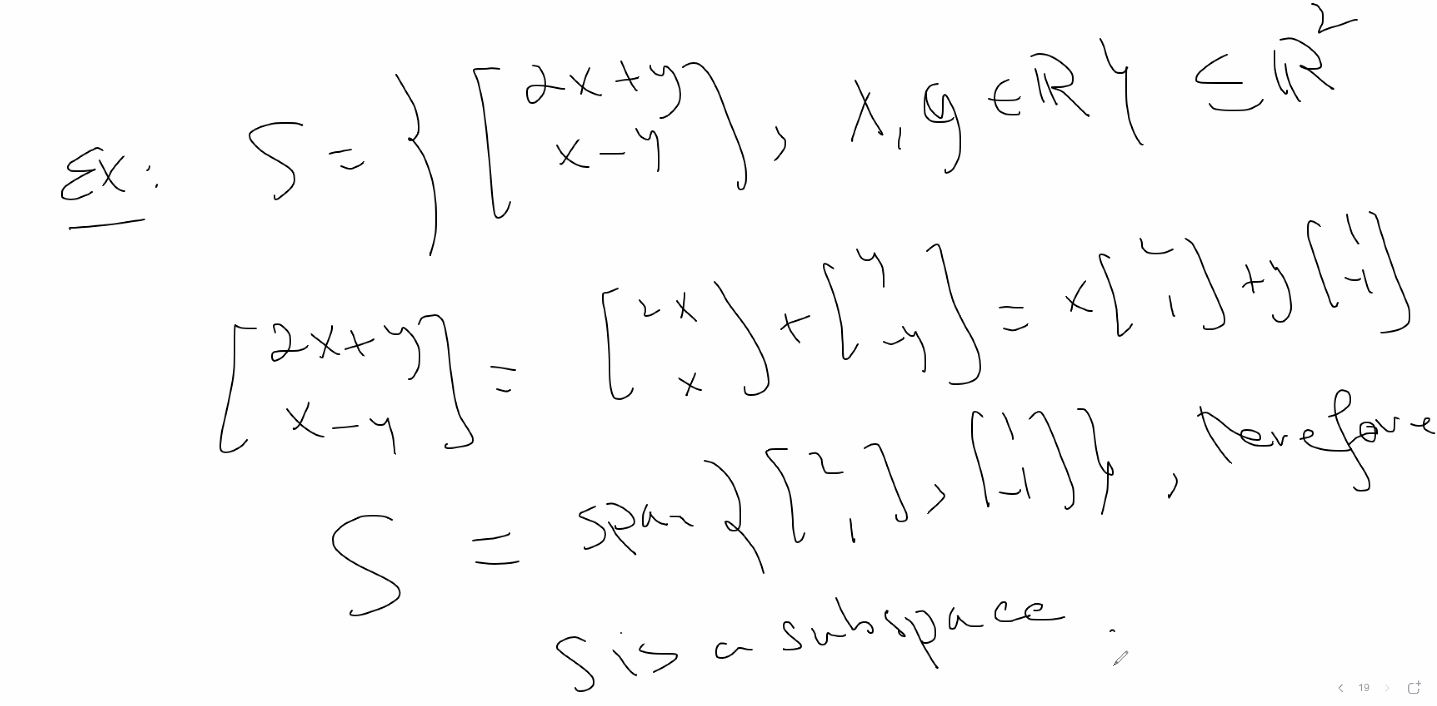 Ex: S = { [2x+y x-y], x, y ∈ ℝ } ⊆ ℝ²
[2x+y x-y] = [2x x] + [y -y] = x [2 1] + y [1 -1]
S = span { [2 1], [1 -1] }, therefore
S is a subspace.
19